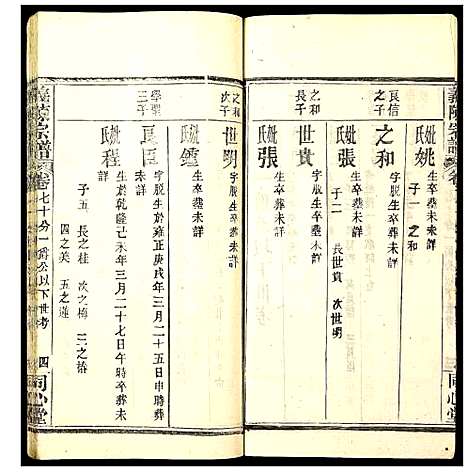 妣姚氏
生卒塟未詳
子一 之和
良信子
之和
字脫生卒塟未詳
妣張氏
生卒塟未詳
子二 長世貴 次世明
之和長子
世貴
字脫生卒塟未詳
妣張氏
生卒塟未詳
之和次子
世明
字脫生卒塟未詳
妣鍾氏
生卒塟未詳
學聖三子
良臣
字脫生於雍正庚戌年三月二十五日申時塟
未詳
妣程氏
生於乾隆己未年三月二十七日午時卒塟未
詳
子五 長之桂 次之梅 三之椿
四之美 五之蓮
義陵宗譜
卷七十 分一爵公以下世考
四
同心堂